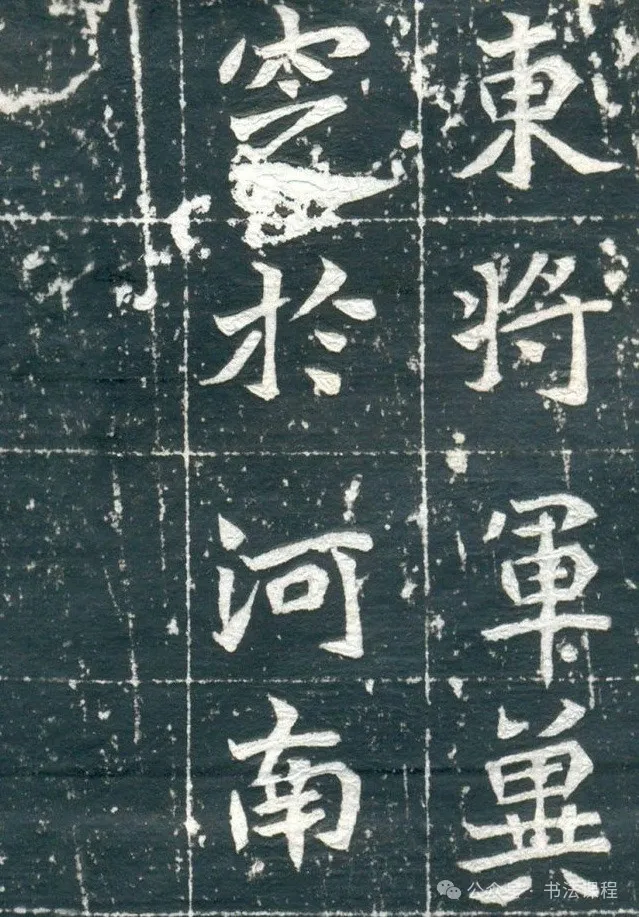 東將軍冀
窆於河南
公众号 · 书法课程